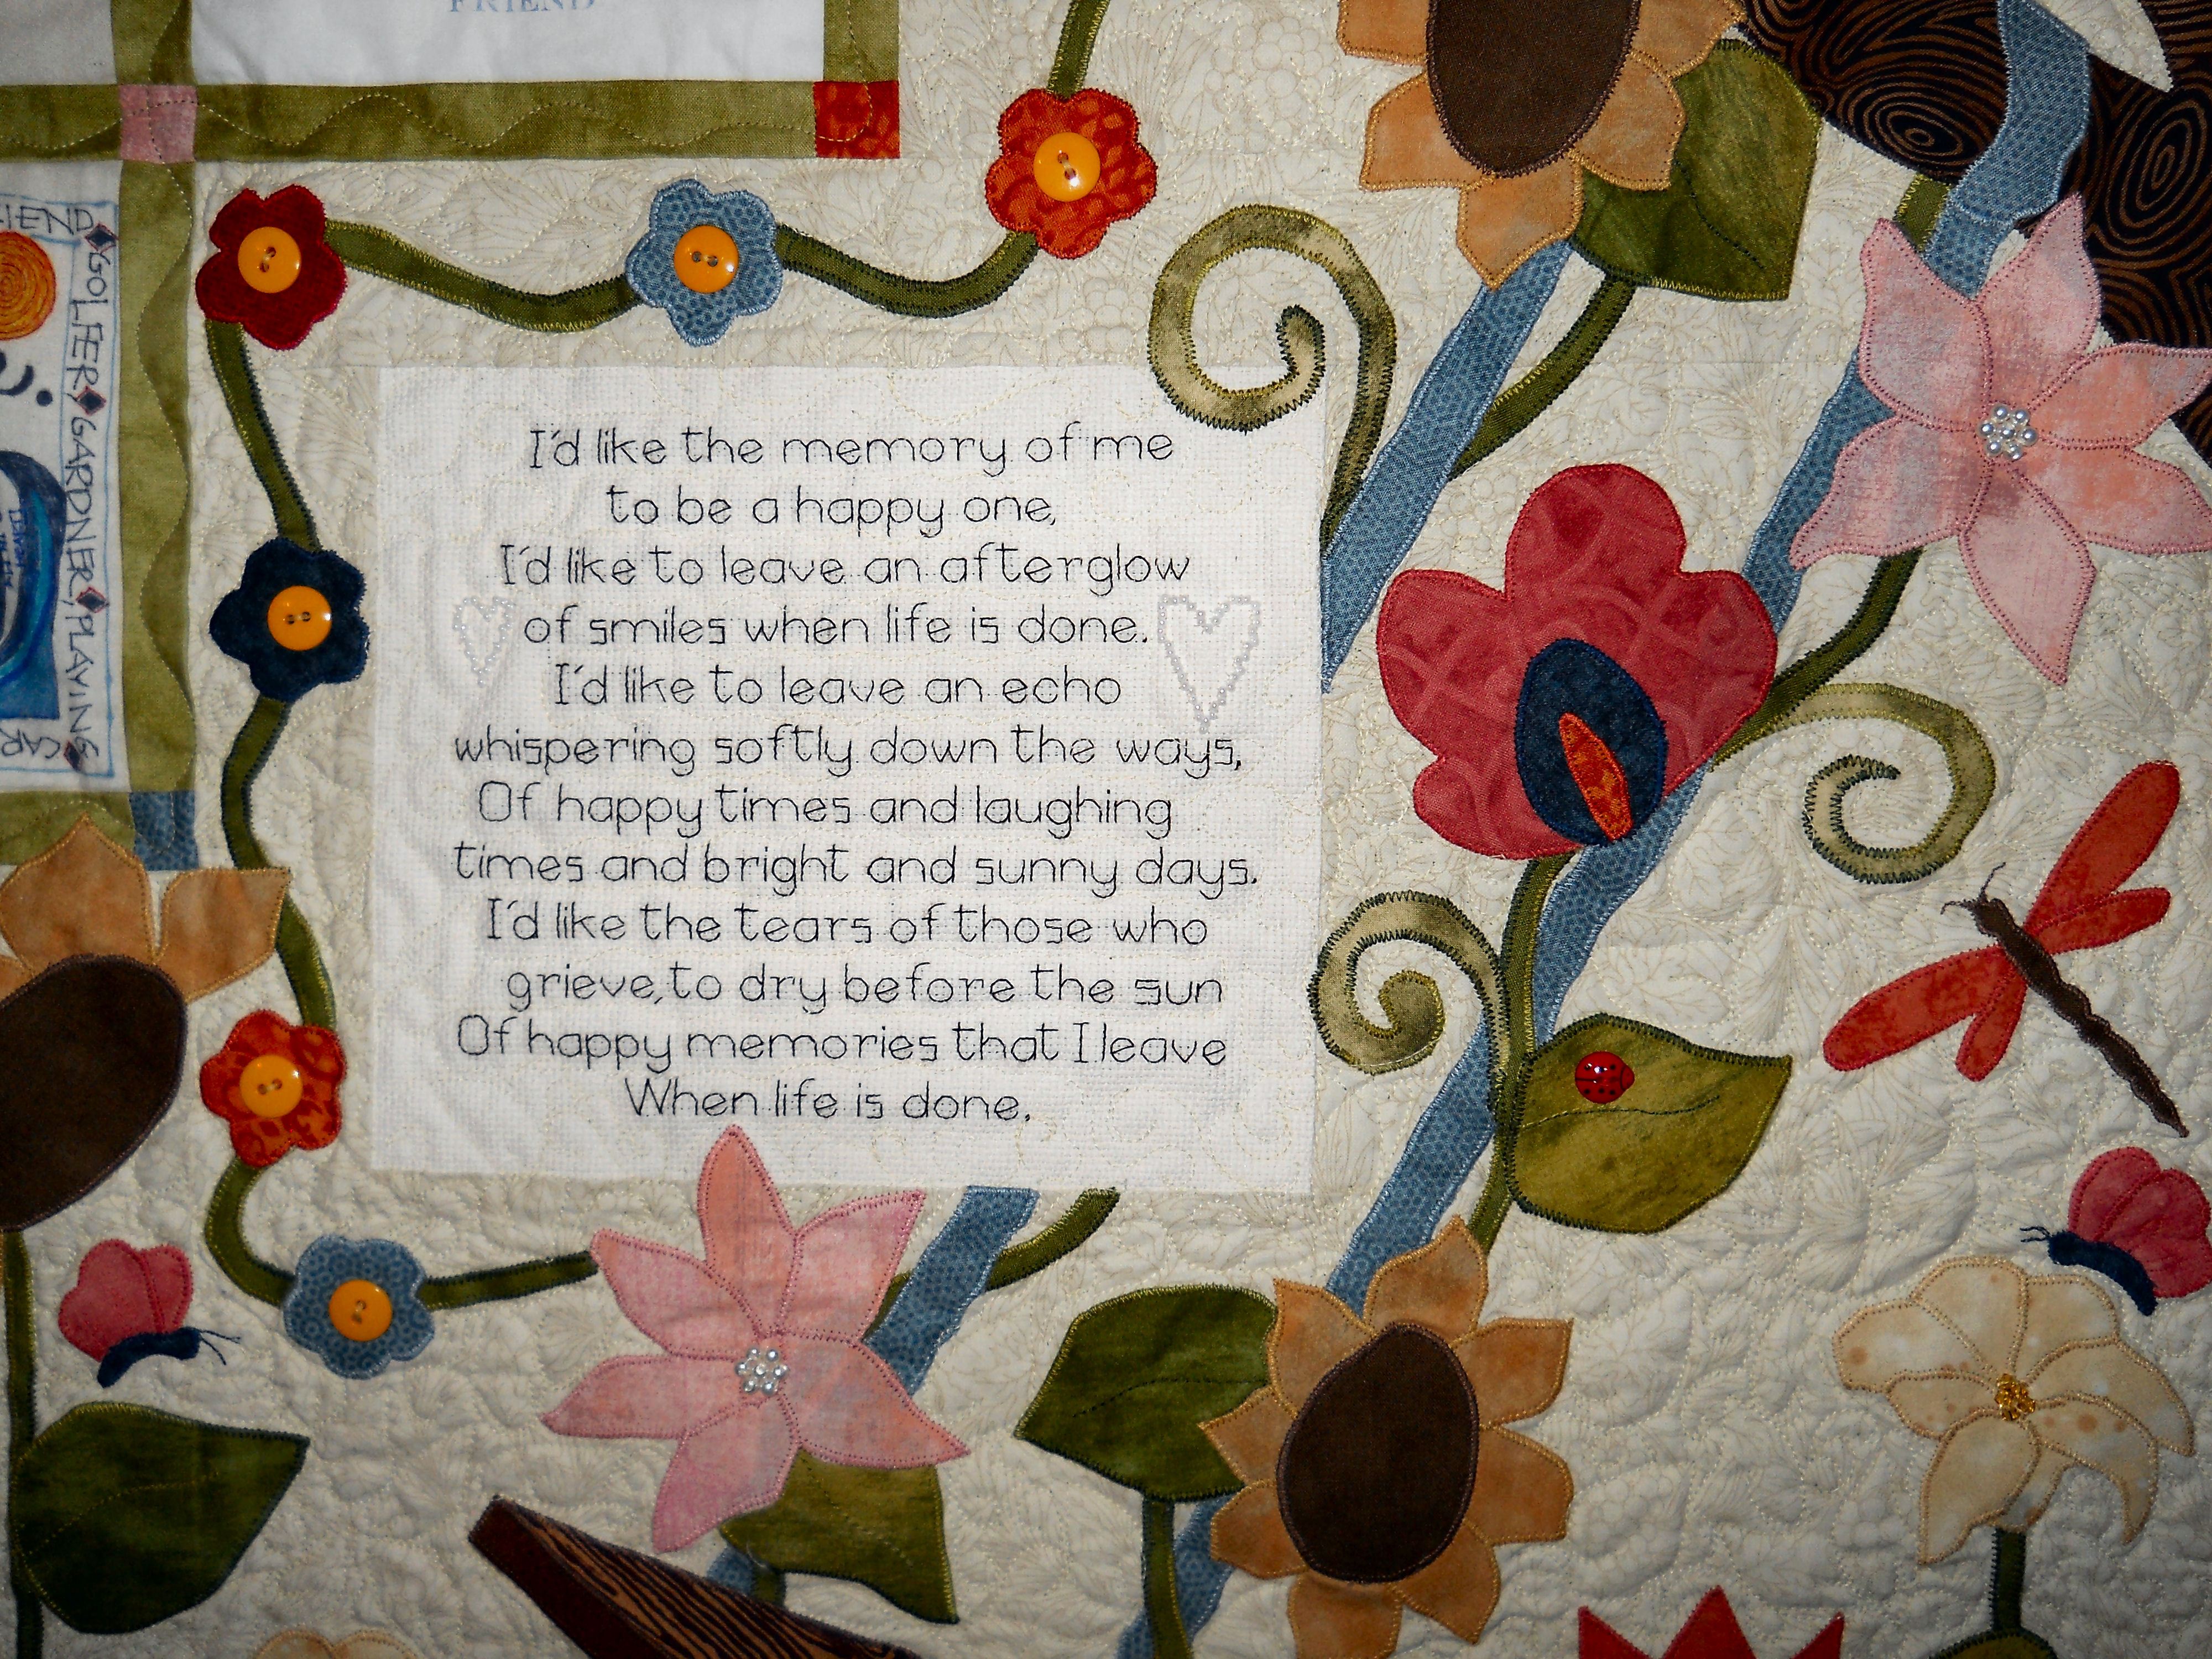 FRIEND
I'd like the memory of me
to be a happy one,
I'd like to leave an afterglow
of smiles when life is done.
I'd like to leave an echo
whispering softly down the ways,
Of happy times and laughing
times and bright and sunny days.
I'd like the tears of those who
grieve, to dry before the sun
Of happy memories that I leave
When life is done.
GOLFER GARDNER, PLAYING